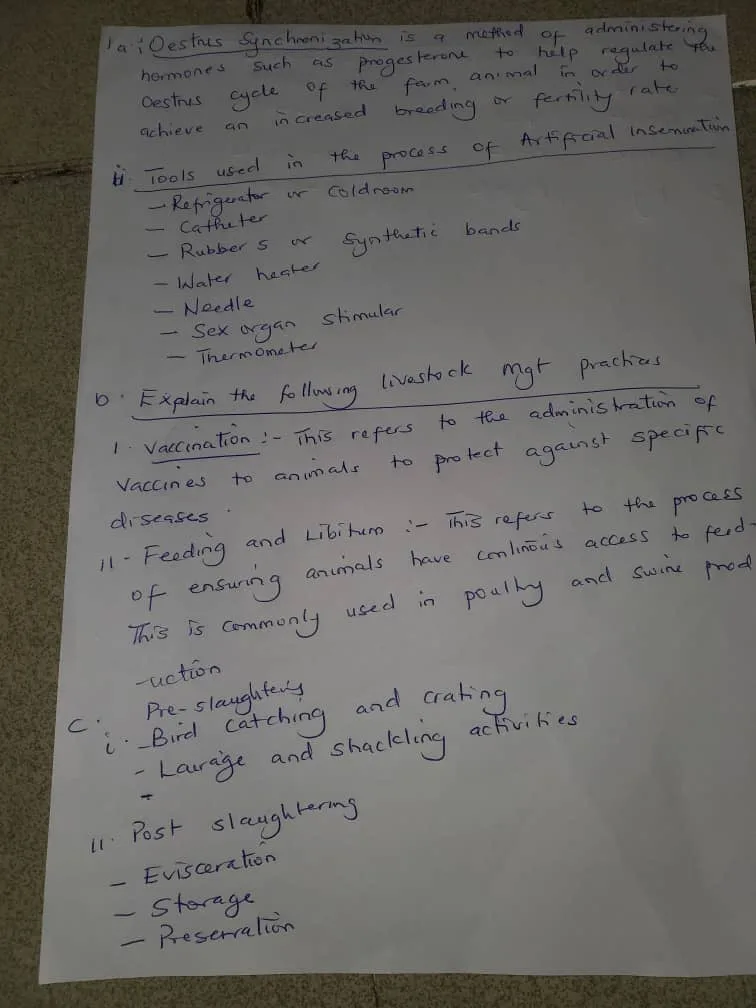 1a. i Oestrus Synchronization is a method of administering
hormones such as progesterone to help regulate the
Oestrus cycle of the farm animal in order to
achieve an increased breeding or fertility rate
ii. Tools used in the process of Artificial Insemination
- Refrigerator or Coldroom
- Catheter
- Rubber s or Synthetic bands
- Water heater
- Needle
- Sex organ stimular
- Thermometer
b. Explain the following livestock Mgt practices
I. Vaccination :- This refers to the administration of
Vaccines to animals to protect against specific
diseases.
II - Feeding and Libitum :- This refers to the process
of ensuring animals have continous access to feed-
This is commonly used in poultry and swine prod
-uction
C. Pre-slaughtering
i. - Bird catching and crating
- Lairage and shackling activities
-
II. Post slaughtering
- Evisceration
- Storage
- Preservation